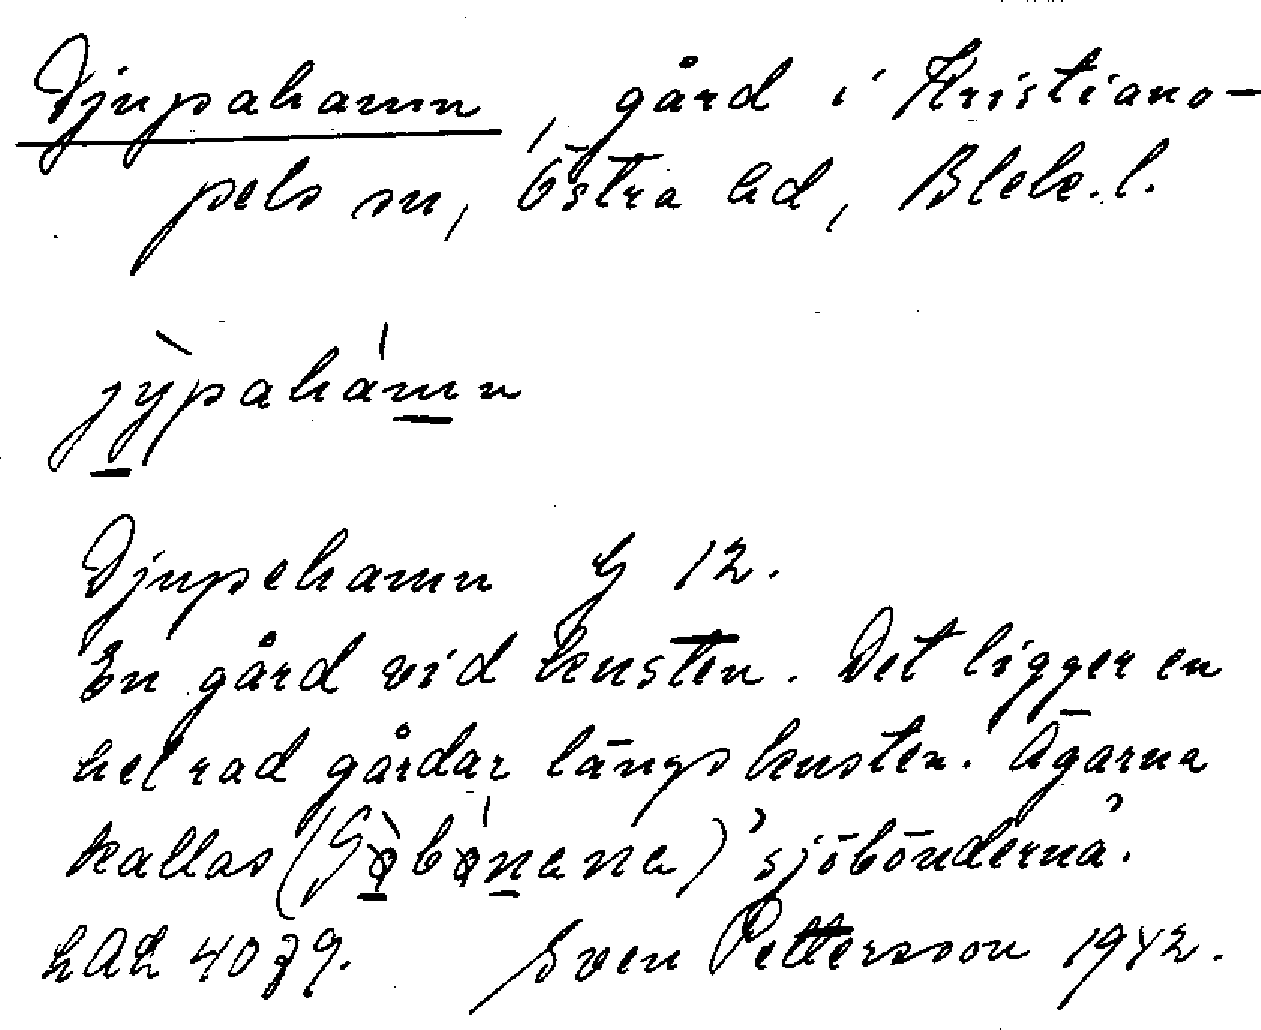 Djupahamn, gård i Kristiano-
pels sn, Östra hd, Blek. l.
jỳpahámn
Djupehamn G 12.
En gård vid kusten. Det ligger en
hel rad gårdar längs kusten. Ägarna
kallas ( ) 'sjöbönderna'.
LAL 4079. Sven Pettersson 1942.